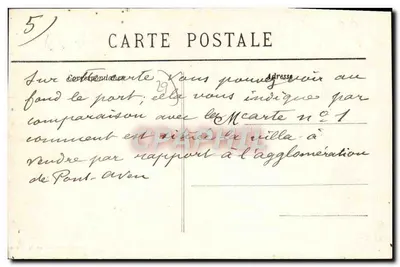 5)
CARTE POSTALE
Correspondance Adresse
Sur cette carte vous pouvez voir au
fond le port, cela vous indique par
comparaison avec la carte n° 1
comment est située la villa à
vendre par rapport à l'agglomération
de Pont-Aven